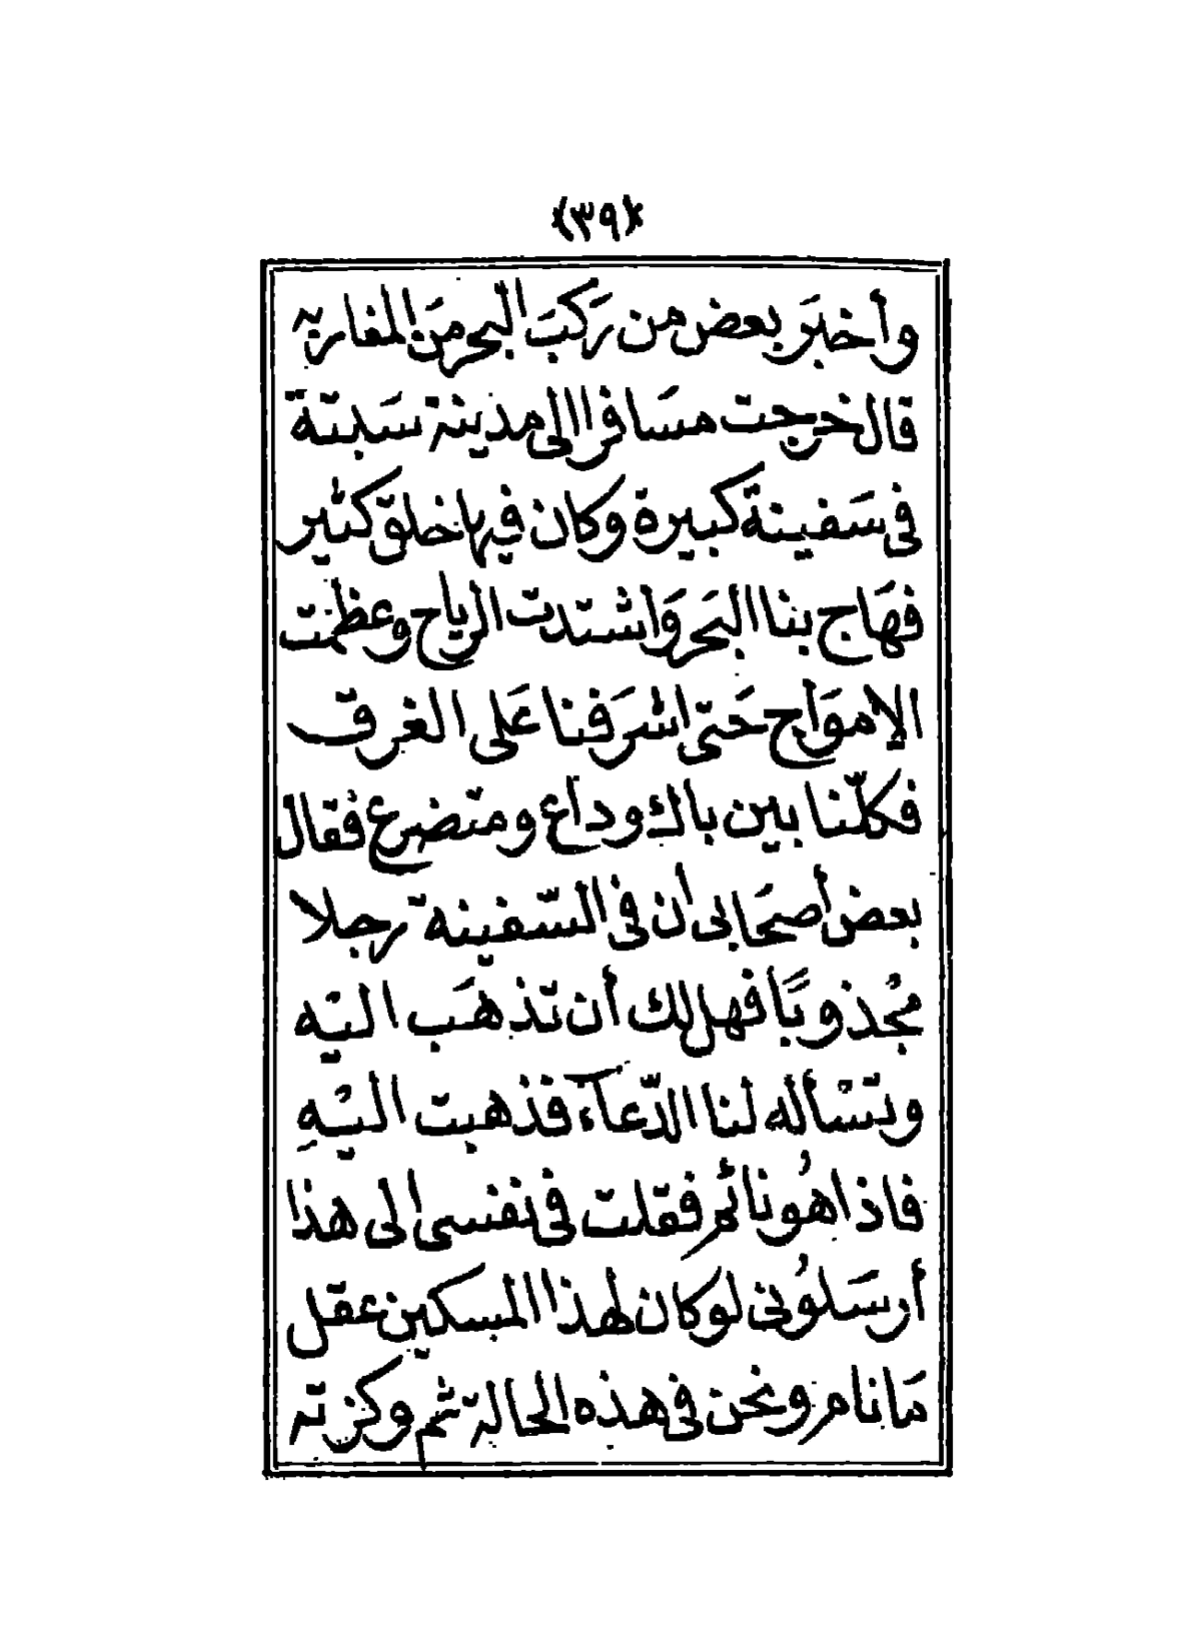 ﴿٣٩﴾
وأخبَر بعض من رَكبَ البحر مَن المغاربة
قال خرجت مسَافرا الى مدينة سَبتة
فى سَفينة كبيرة وكان فيها خلق كثير
فهَاج بنا البحَر وَاشتدت الرياح وعظمت
الامَواج حَتى اشرَفنا عَلى الغرق
فكلّنا بين باك وداع ومتضرع فقال
بعض أصحَابى أن فى السّفينة رجلا
مجُذوبًا فهل لك أن تذهَب اليه
وتسْأله لنا الدّعآء فذهبت اليْهِ
فاذا هُو نائم فقلت فى نفسى الى هذا
أرسَلوُنى لو كان لهذا المسكين عقل
مَا نام ونحن فى هذه الحالة ثم وكزته